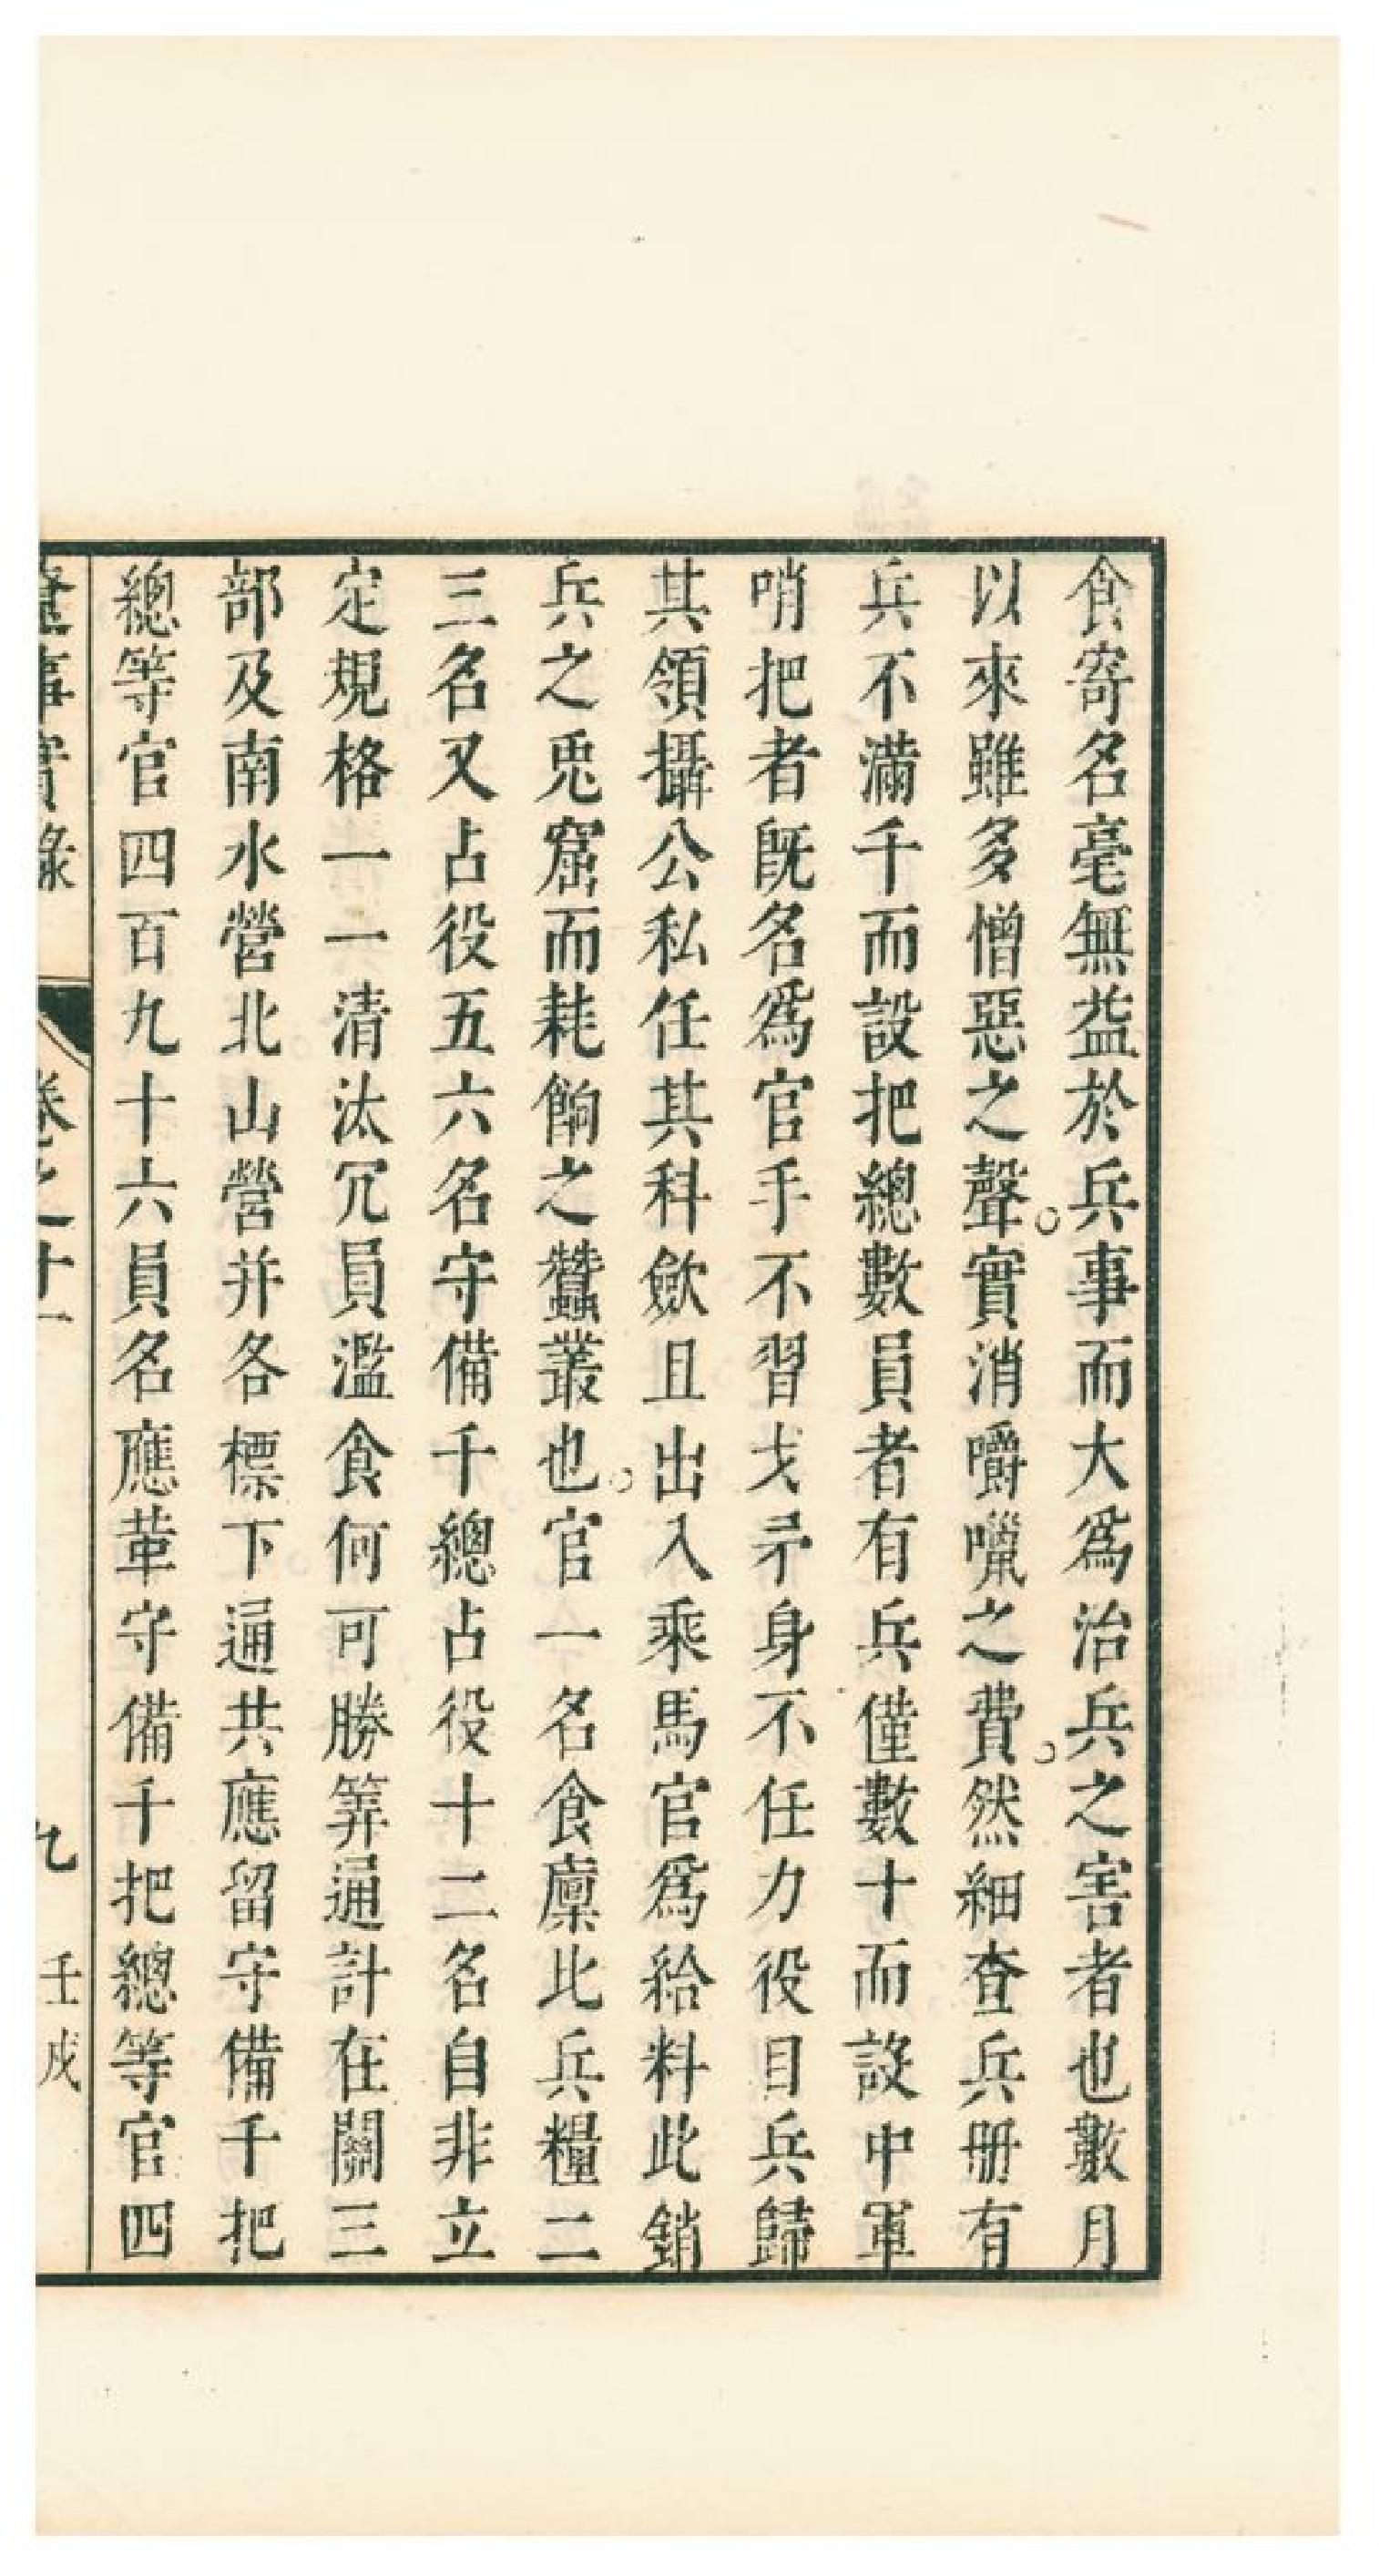 食寄名毫無益於兵事而大爲治兵之害者也數月
以來雖多憎惡之聲實消嚼囓之費然細查兵册有
兵不滿千而設把總數員者有兵僅數十而設中軍
哨把者旣名爲官手不習戈矛身不任力役目兵歸
其領攝公私任其科歛且出入乘馬官爲給料此銷
兵之兎窟而耗餉之蠶叢也官一名食廩比兵糧二
三名又占役五六名守備千總占役十二名自非立
定規格一一清汰冗員濫食何可勝筭通計在關三
部及南水營北山營并各標下通共應留守備千把
總等官四百九十六員名應革守備千把總等官四
事實錄 卷之十一 九 壬戌